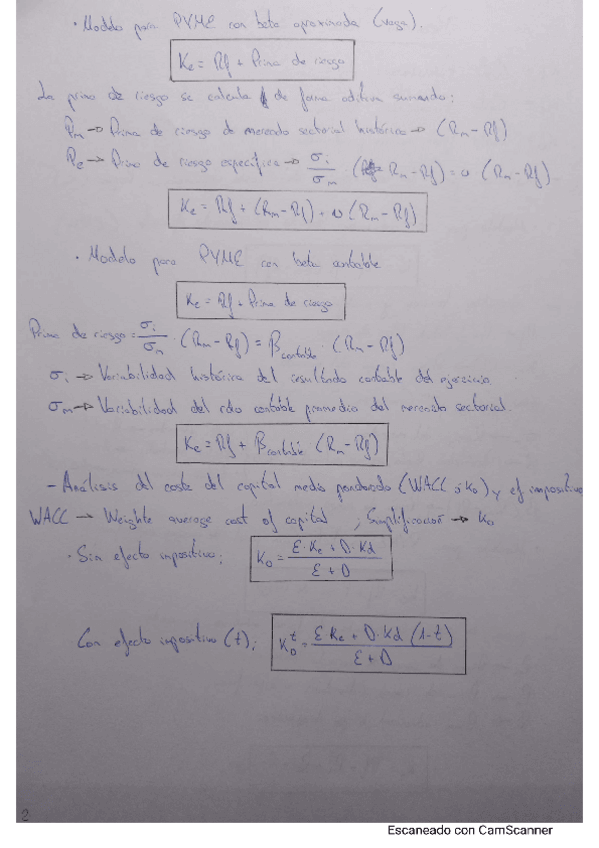 · Modelo para PYME con beta aproximada (vaga).
Ke = Rf + Prima de riesgo
La prima de riesgo se calcula de forma aditiva sumando:
Pm → Prima de riesgo de mercado sectorial histórica → (Rm - Rf)
Pe → Prima de riesgo específica → σi/σm · (Rm - Rf) = υ (Rm - Rf)
Ke = Rf + (Rm - Rf) + υ (Rm - Rf)
· Modelo para PYME con beta contable
Ke = Rf + Prima de riesgo
Prima de riesgo = σi/σm · (Rm - Rf) = βcontable · (Rm - Rf)
σi → Variabilidad histórica del resultado contable del ejercicio.
σm → Variabilidad del rdo contable promedio del mercado sectorial.
Ke = Rf + βcontable (Rm - Rf)
- Análisis del coste del capital medio ponderado (WACC ó K0) y ef impositivo
WACC → Weighte average cost of capital ; Simplificación → K0
· Sin efecto impositivo; K0 = (E · Ke + D · Kd) / (E + D)
Con efecto impositivo (t); K0^t = (E Ke + D · Kd (1-t)) / (E + D)
2
Escaneado con CamScanner